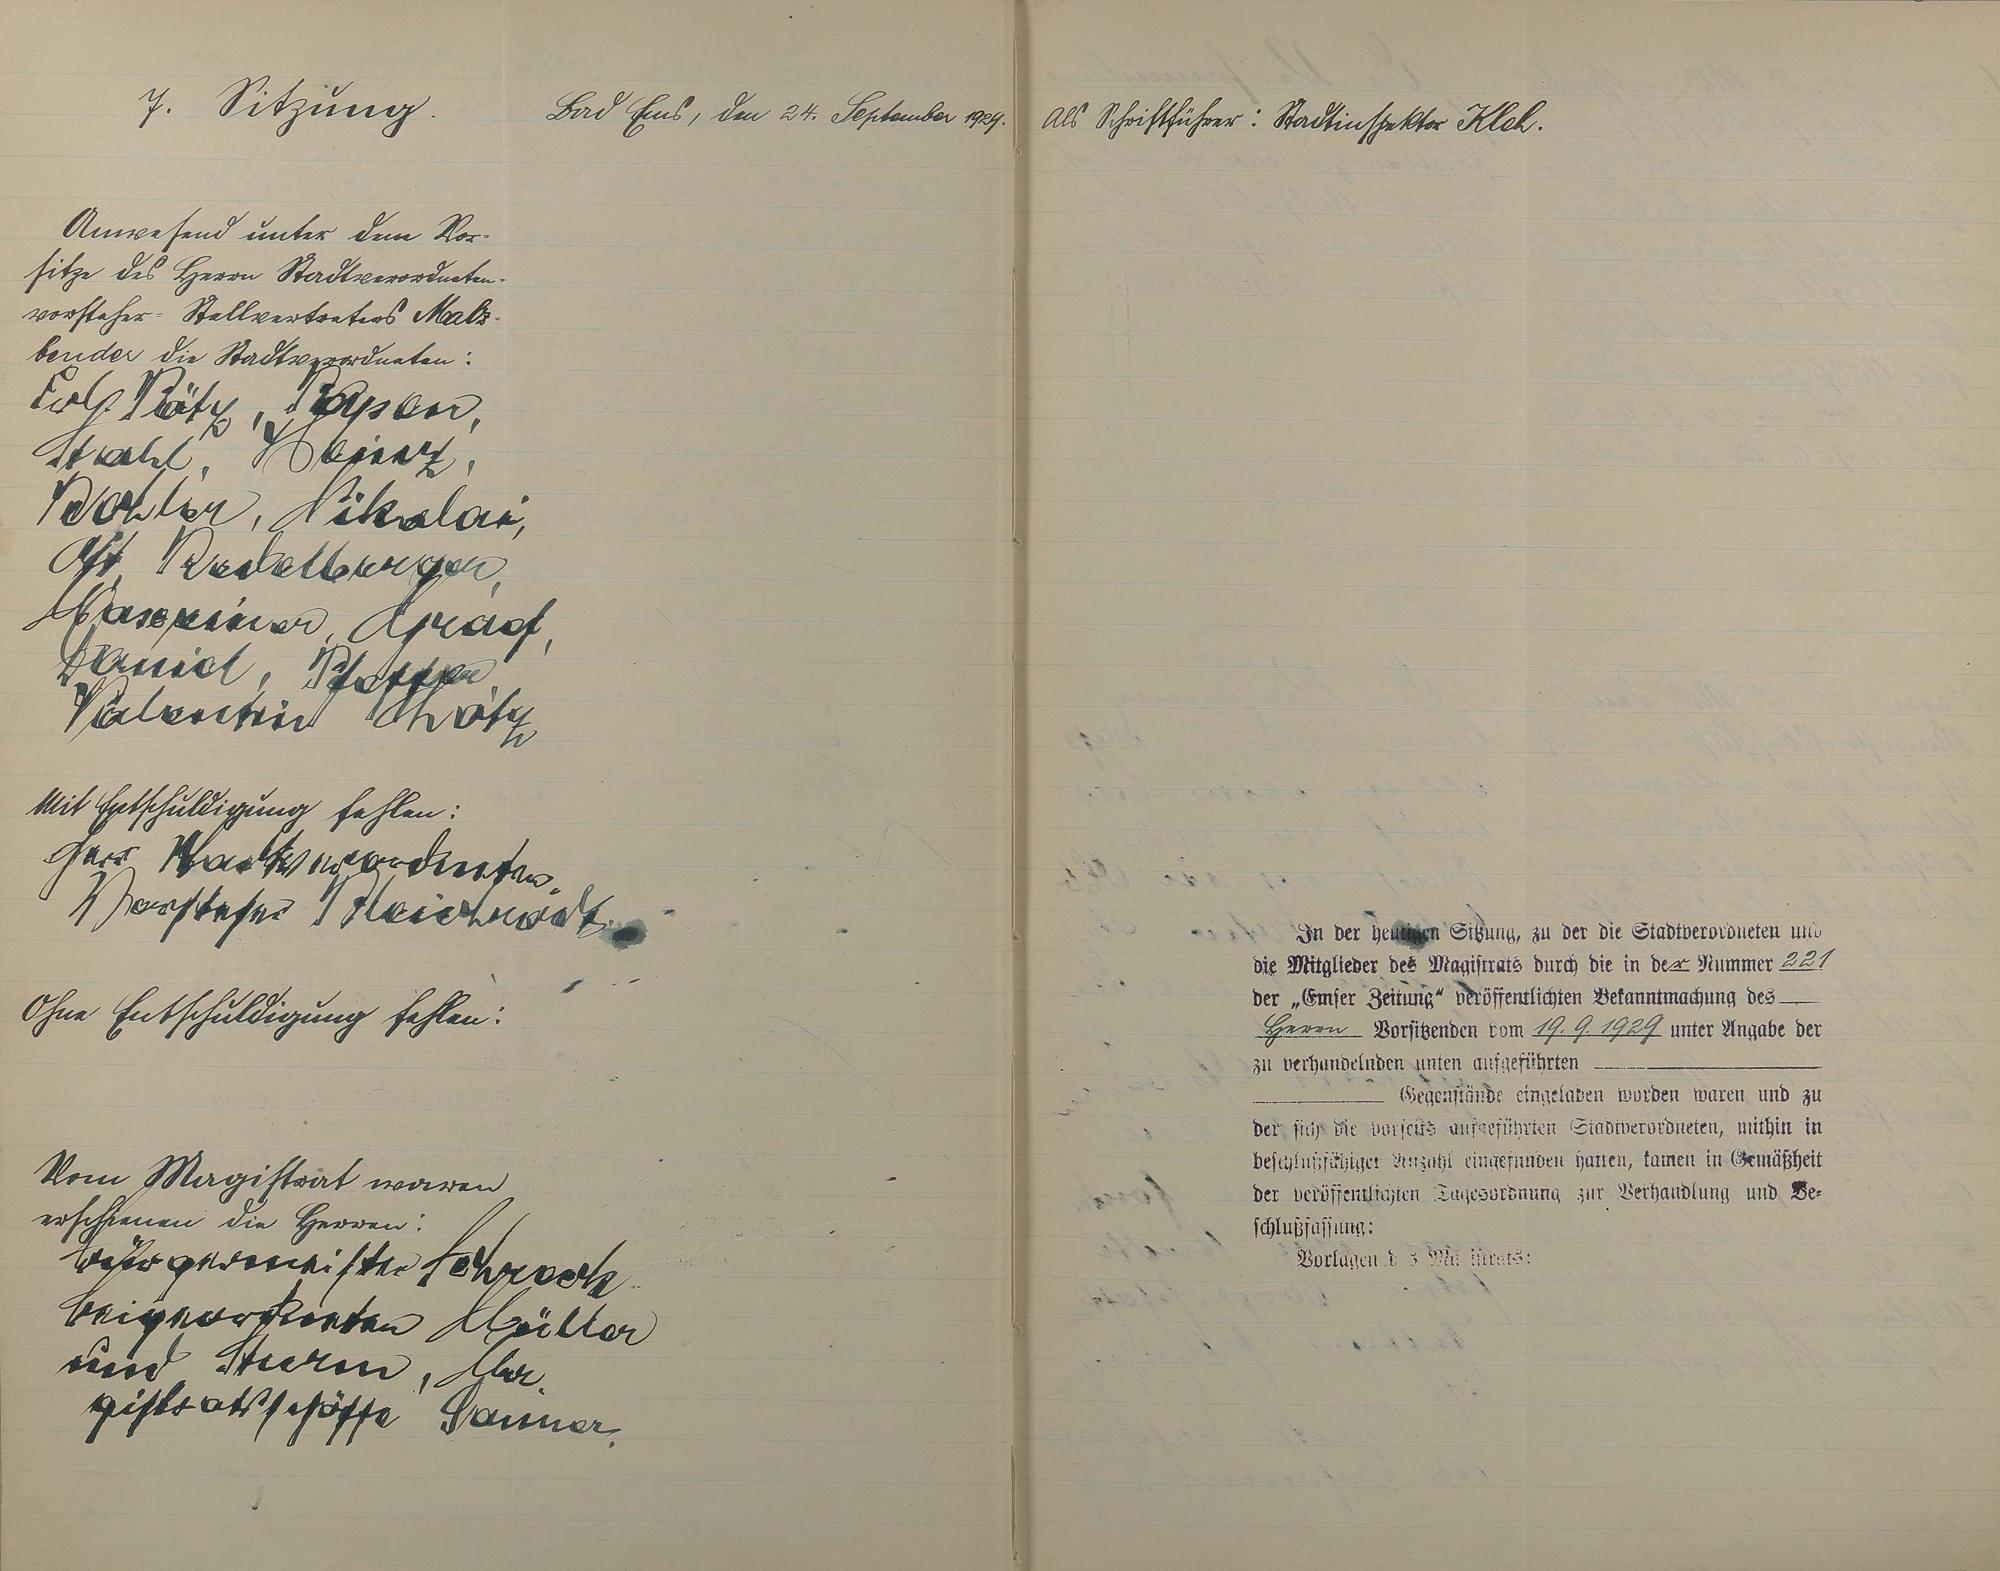 7. Sitzung. Bad Ems, den 24. September 1929.
Anwesend unter dem Vor-
sitze des Herrn Stadtverordneten-
vorsteher-Stellvertreters Malz-
bender die Stadtverordneten:
Strahl, Heinz,
Nikolai,
Ast,
Graef,
Daniel,
Valentin
Mit Entschuldigung fehlen:
Herr Stadtverordneten-
Vorsteher
Ohne Entschuldigung fehlen:
Vom Magistrat waren
erschienen die Herren:
Bürgermeister Schrock
Beigeordneten Müller
und Sturm, Ma-
gistratsschöffe Sanner.
Als Schriftführer: Stadtinspektor
In der heutigen Sitzung, zu der die Stadtverordneten und
die Mitglieder des Magistrats durch die in der Nummer 221
der „Emser Zeitung“ veröffentlichten Bekanntmachung des
Herrn Vorsitzenden vom 19.9.1929 unter Angabe der
zu verhandelnden unten aufgeführten
Gegenstände eingeladen worden waren und zu
der sich die vorseits aufgeführten Stadtverordneten, mithin in
beschlußfähiger Anzahl eingefunden hatten, kamen in Gemäßheit
der veröffentlichten Tagesordnung zur Verhandlung und Be-
schlußfassung:
Vorlagen des Magistrats: